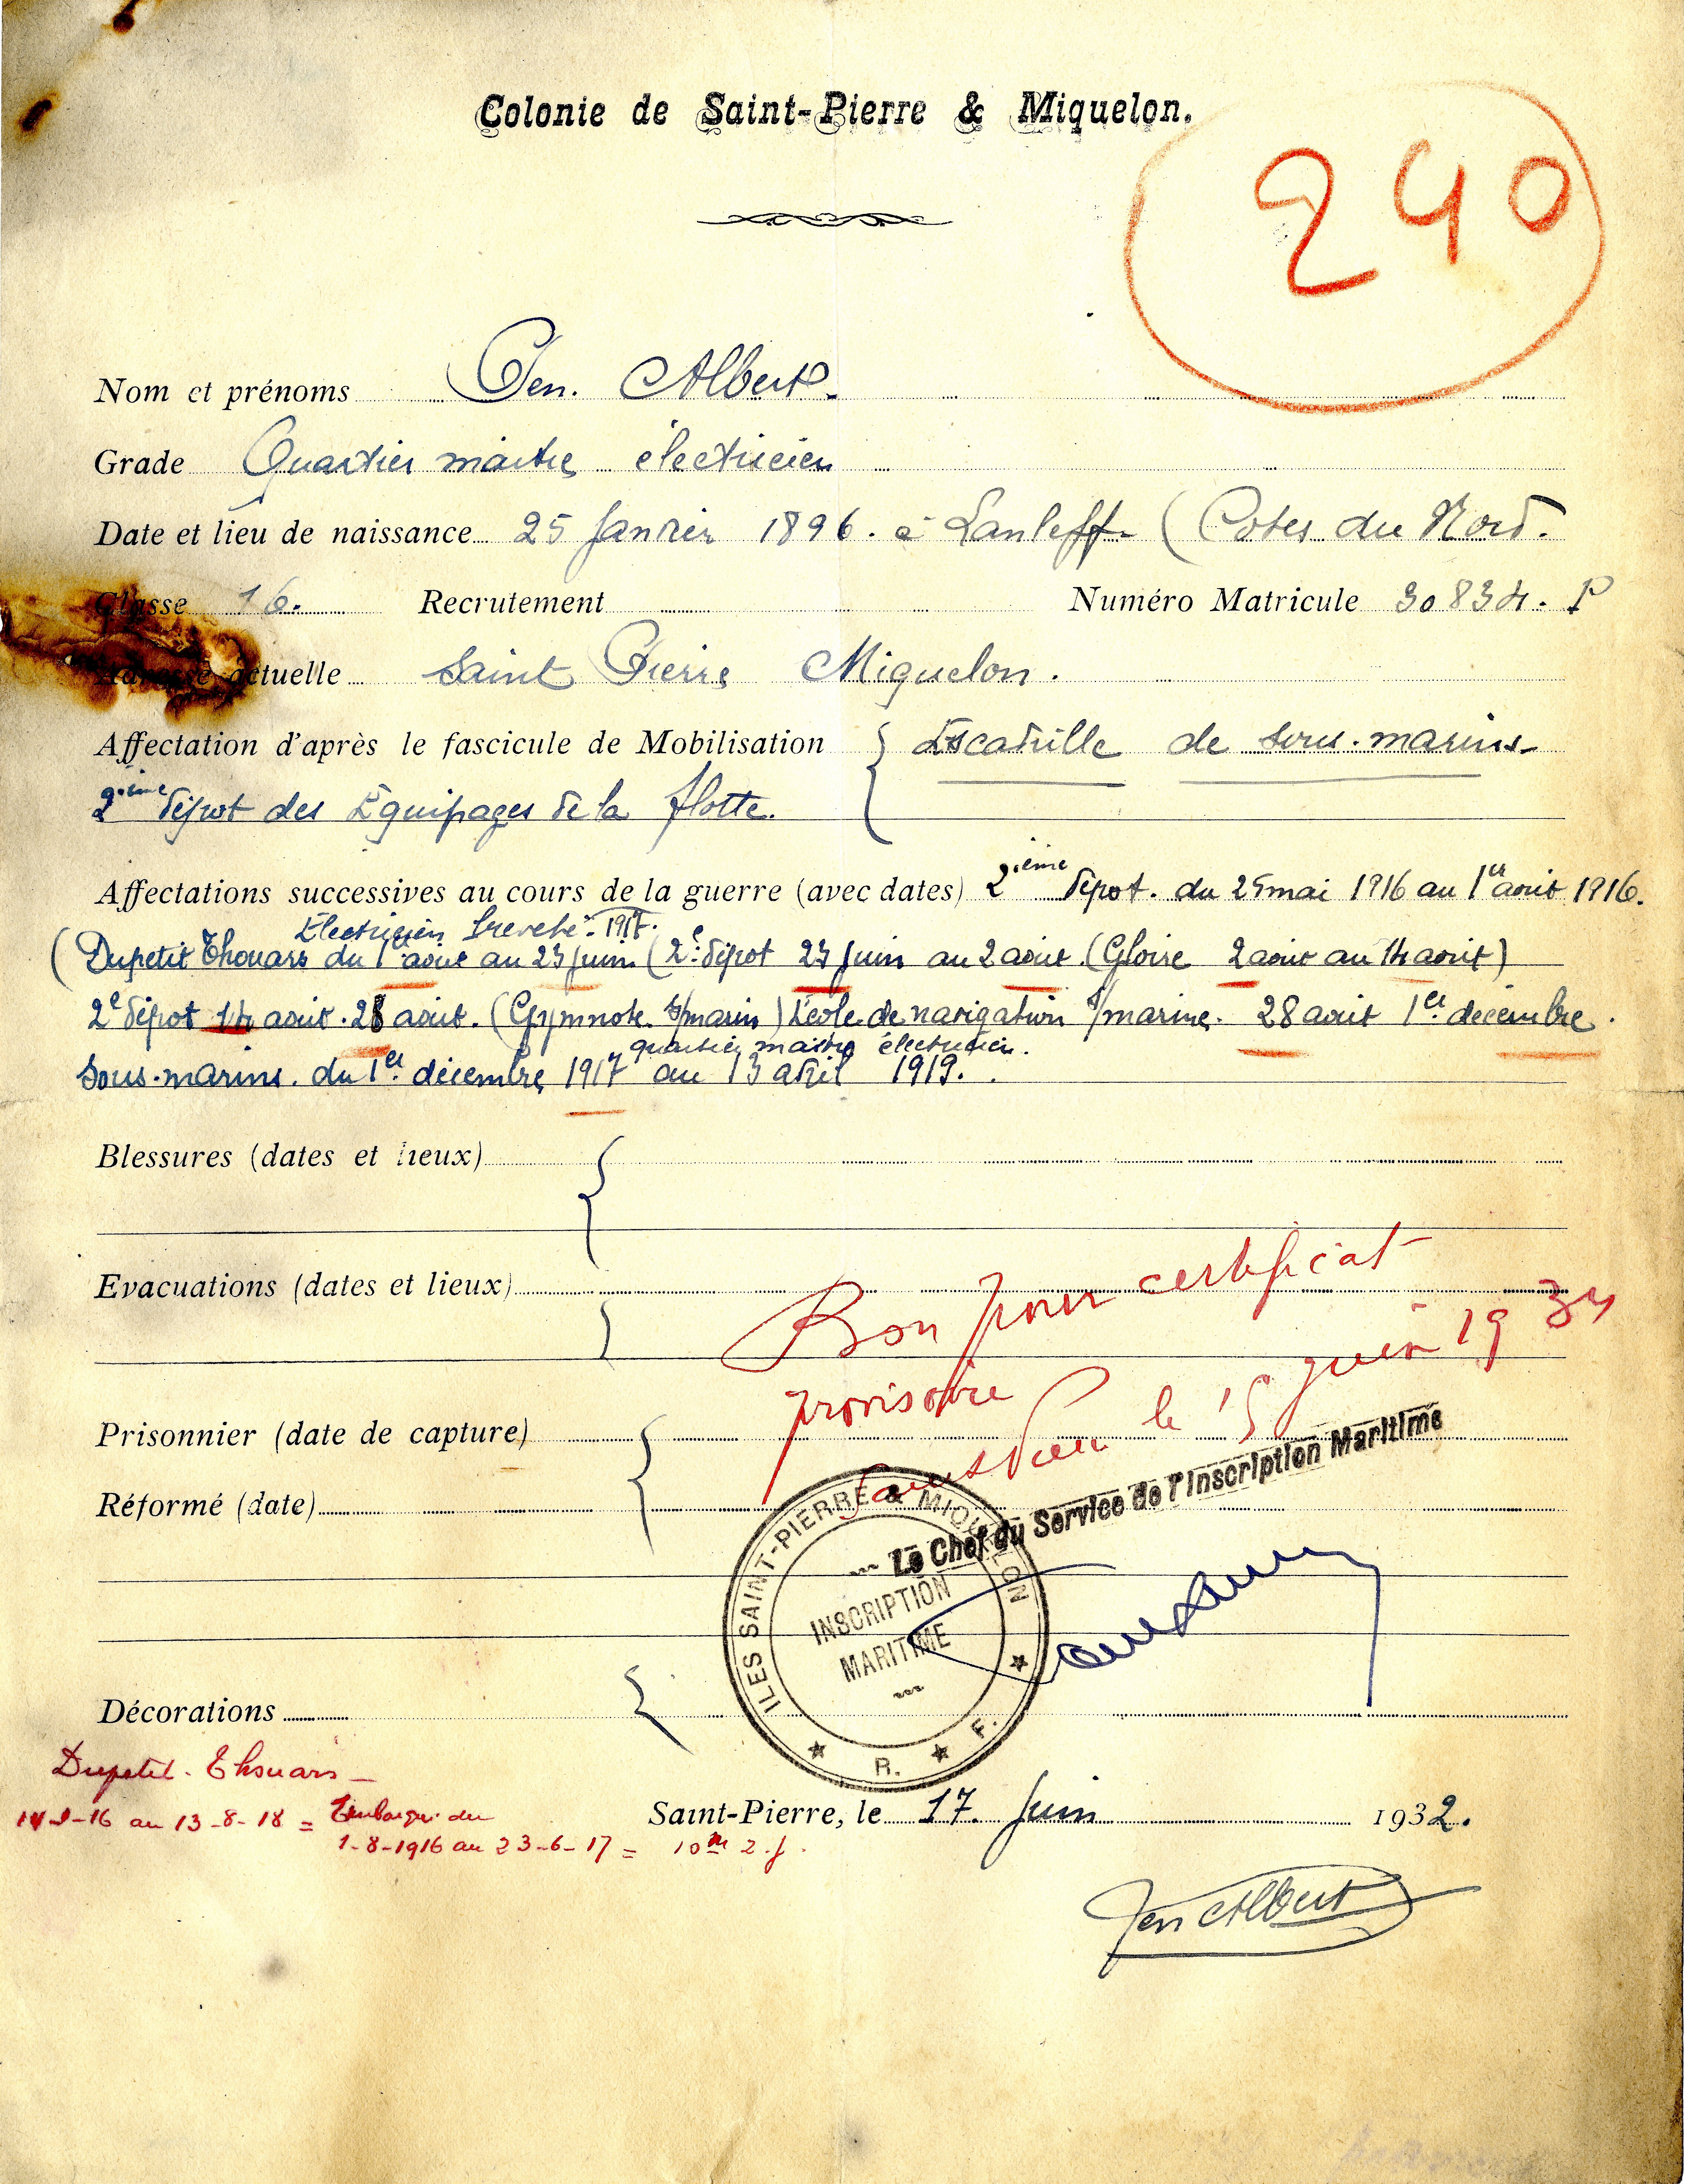 Colonie de Saint-Pierre & Miquelon.
240
Nom et prénoms Pen. Albert.
Grade Quartier maitre électricien
Date et lieu de naissance 25 Janvier 1896. à Lanleff. (Cotes du Nord.
Classe 16. Recrutement Numéro Matricule 30834. P
Adresse actuelle Saint Pierre Miquelon.
Affectation d'après le fascicule de Mobilisation { Escadrille de sous.marins.
2ième dépot des Equipages de la flotte.
Affectations successives au cours de la guerre (avec dates) 2ième dépot. du 25 mai 1916 au 1er aout 1916.
Electricien breveté. 1917.
(Dupetit Thouars du 1er aout au 23 Juin (2e dépot 23 Juin au 2 aout (Gloire 2 aout au 14 aout)
2e dépot 14 aout. 28 aout. (Gymnote. s/marin) Ecole de navigation s/marine. 28 aout 1er décembre.
quartier maitre électricien.
Sous-marins. du 1er décembre 1917 au 13 avril 1919.
Blessures (dates et lieux)
Evacuations (dates et lieux)
Bon pour certificat
provisoire
le 15 juin 1934
Prisonnier (date de capture)
Réformé (date)
Le Chef du Service de l'Inscription Maritime
ILES SAINT-PIERRE & MIQUELON
INSCRIPTION
MARITIME
R. F.
Décorations
Dupetit-Thouars
-16 au 13-8-18 = Embarqué du
1-8-1916 au 23-6-17 = 10m 2.j.
Saint-Pierre, le 17 Juin 1932.
Pen Albert